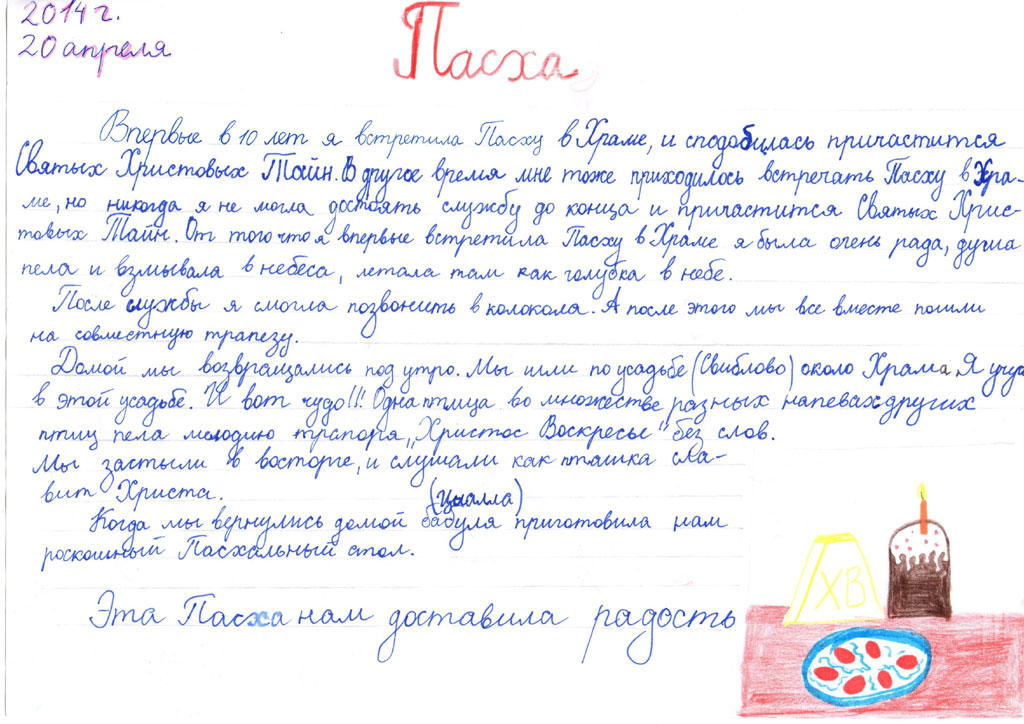 2014 г.
20 апреля
Пасха
Впервые в 10 лет я встретила Пасху в Храме, и сподобилась причастится
Святых Христовых Тайн. В другое время мне тоже приходилось встречать Пасху в Хра-
ме, но никогда я не могла достоять службу до конца и причастится Святых Хрис-
товых Тайн. От того что я впервые встретила Пасху в Храме я была очень рада, душа
пела и взмывала в небеса, летала там как голубка в небе.
После службы я смогла позвонить в колокола. А после этого мы все вместе пошли
на совместную трапезу.
Домой мы возвращались под утро. Мы шли по усадьбе (Свиблово) около Храма. Я учусь
в этой усадьбе. И вот чудо!!! Одна птица во множестве разных напевах других
птиц пела мелодию трапоря „Христос Воскресы" без слов.
Мы застыли в восторге, и слушали как пташка сла-
вит Христа.
(Циалла)
Когда мы вернулись домой бабуля приготовила нам
роскошный Пасхальный стол.
Эта Пасха нам доставила радость
ХВ